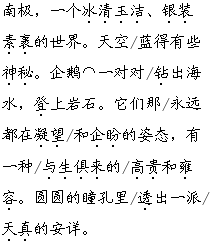 南极，一个冰清玉洁、银装
素裹的世界。天空/蓝得有些
神秘。企鹅⌒一对对/钻出海
水，登上岩石。它们那/永远
都在凝望/和企盼的姿态，有
一种/与生俱来的/高贵和雍
容。圆圆的瞳孔里/透出一派/
天真的安详。